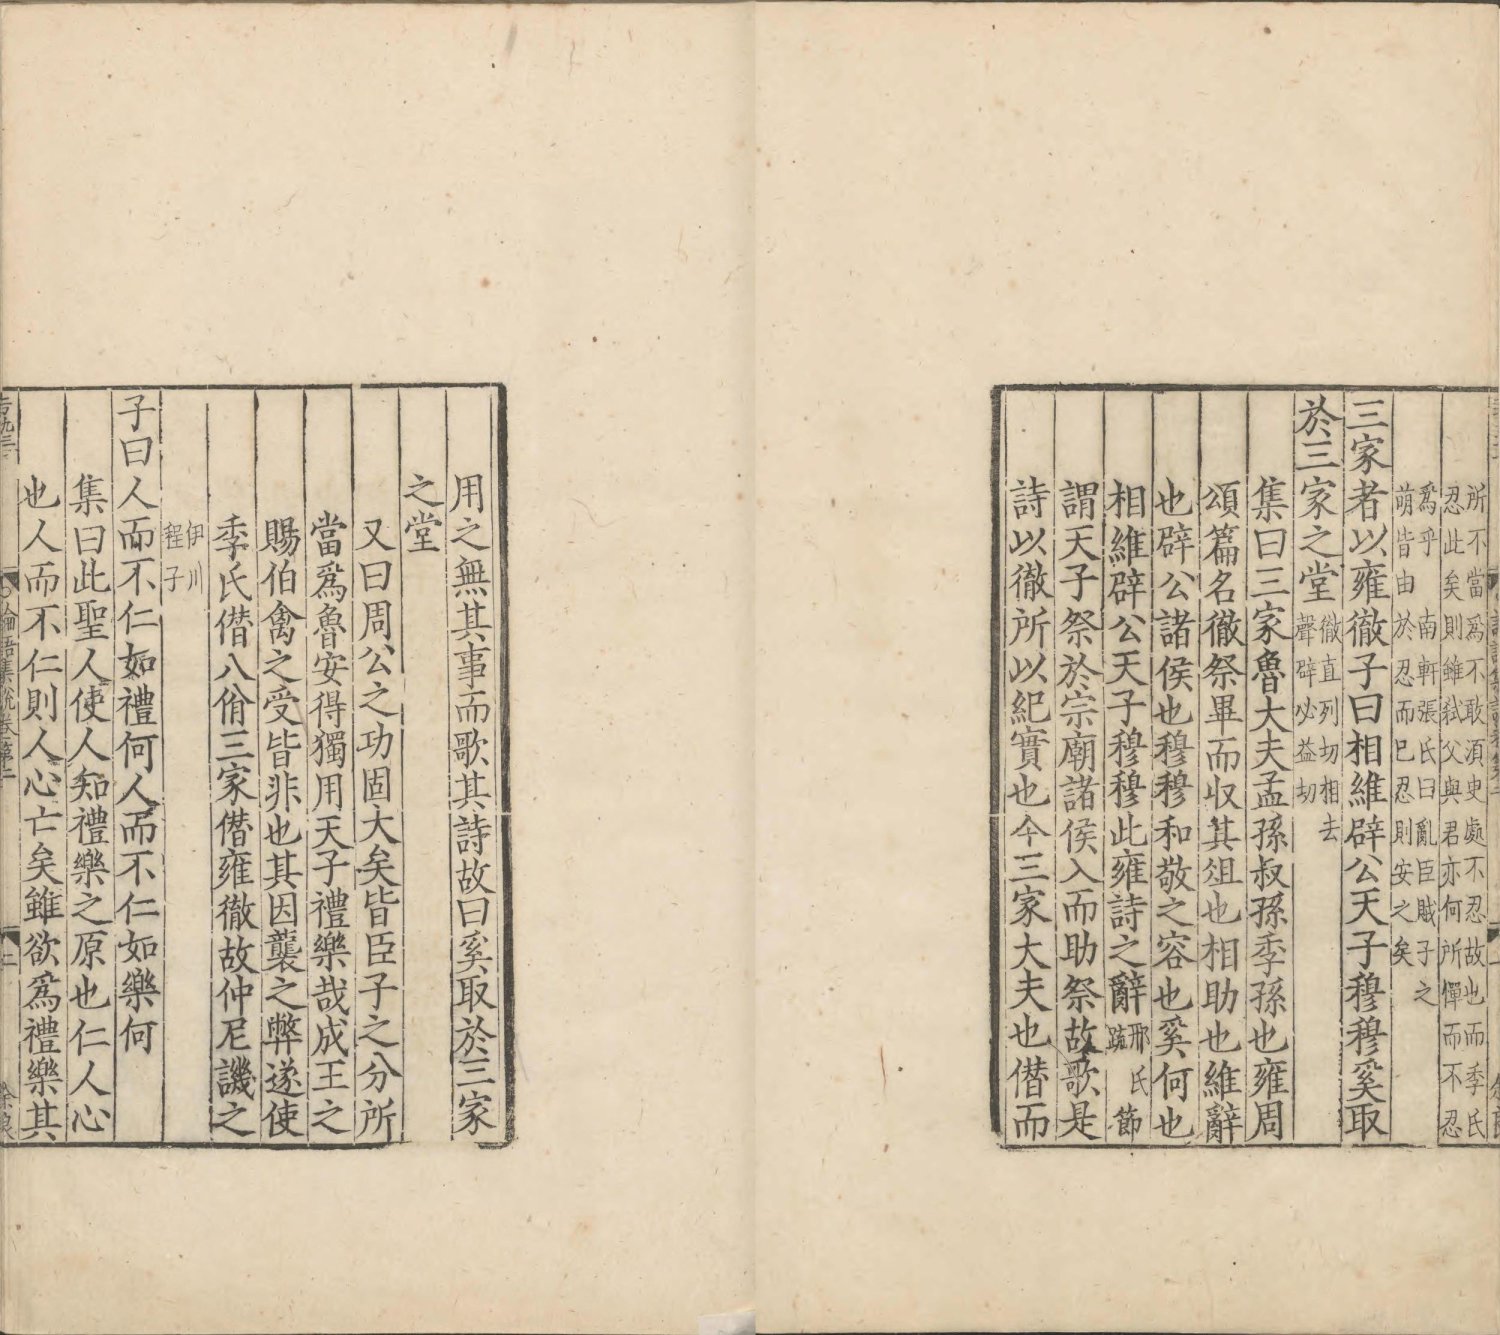 所不當爲不敢須㬰處不忍故也而季氏
忍此矣則雖弑父與君亦何所憚而不忍
爲乎 南軒張氏曰亂臣賊子之
萌皆由於忍而巳忍則安之矣
三家者以雍徹子曰相維辟公天子穆穆奚取
於三家之堂徹直列切相去
聲辟必益切
集曰三家魯大夫孟孫叔孫季孫也雍周
頌篇名徹祭畢而収其俎也相助也維辭
也辟公諸侯也穆穆和敬之容也奚何也
相維辟公天子穆穆此雍詩之辭邢氏
疏節
謂天子祭於宗廟諸侯入而助祭故歌是
詩以徹所以紀實也今三家大夫也僭而
用之無其事而歌其詩故曰奚取於三家
之堂
又曰周公之功固大矣皆臣子之分所
當爲魯安得獨用天子禮樂哉成王之
賜伯禽之受皆非也其因襲之弊遂使
季氏僭八佾三家僭雍徹故仲尼譏之
伊川
程子
子曰人而不仁如禮何人而不仁如樂何
集曰此聖人使人知禮樂之原也仁人心
也人而不仁則人心亡矣雖欲爲禮樂其
論語集說卷第二
二